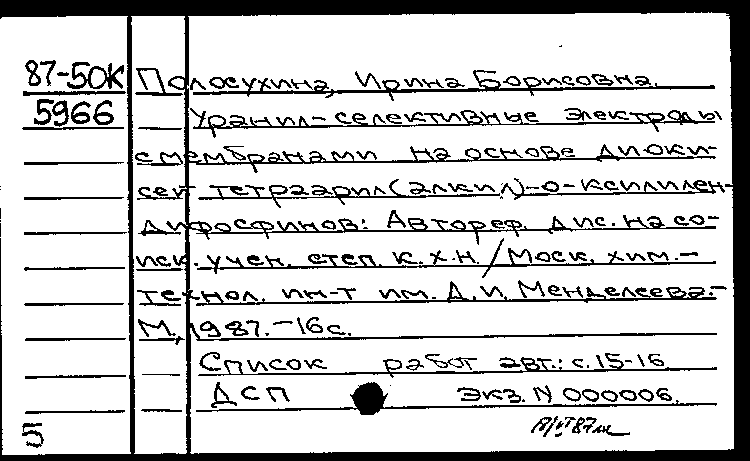 87-50К Полосухина, Ирина Борисовна.
5966 Уранил-селективные электроды
с мембранами на основе диоки-
сей тетраарил(алкил)-о-ксилилен-
дифосфинов: Автореф. дис. на со-
иск. учен. степ. к.х.н. / Моск. хим.-
технол. ин-т им. Д.И. Менделеева.-
М., 1987.-16с.
Список работ авт.: с.15-16
ДСП Экз. N 000006.
5